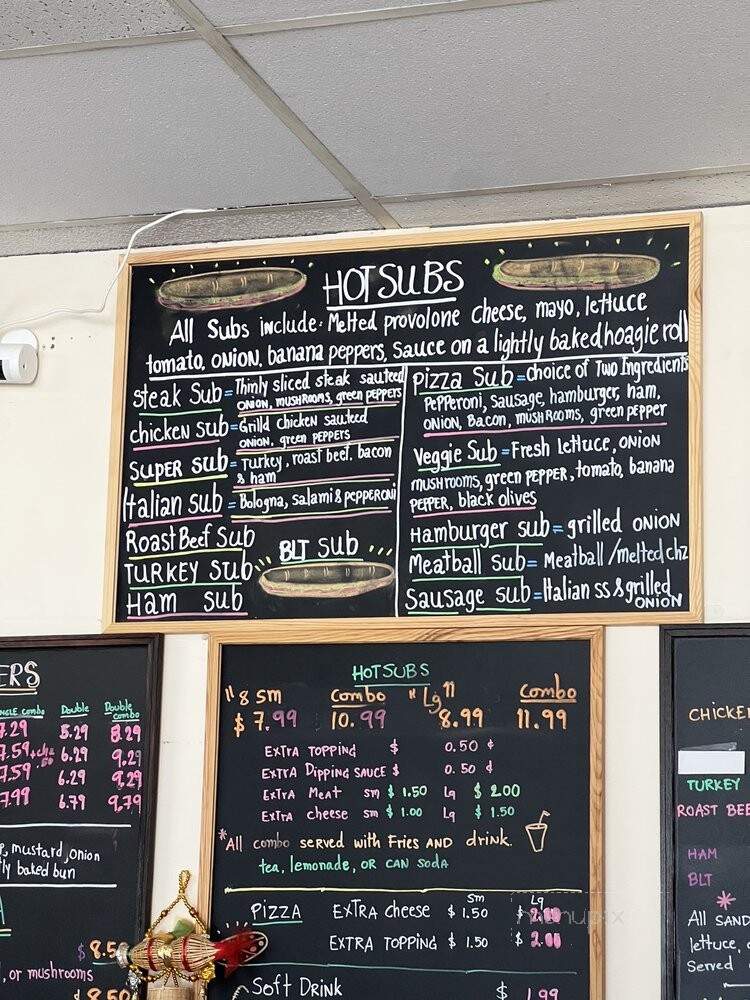 HOT SUBS
All Subs include: Melted provolone cheese, mayo, lettuce
tomato, onion, banana peppers, sauce on a lightly baked hoagie roll
Steak Sub = Thinly sliced steak sauteed
onion, mushrooms, green peppers
chicken sub = Grilld chicken sauteed
onion, green peppers
Super sub = Turkey, roast beef, bacon
& ham
Italian sub = Bologna, salami & pepperoni
Roast Beef Sub
TURKEY Sub
Ham sub
BLT Sub
Pizza Sub = choice of Two Ingredients
Pepperoni, sausage, hamburger, ham,
onion, Bacon, mushrooms, green pepper
Veggie Sub = Fresh lettuce, onion
mushrooms, green pepper, tomato, banana
pepper, black olives
Hamburger sub = grilled onion
Meatball sub = Meatball / melted chz
Sausage sub = Italian ss & grilled
onion
ERS
NGLE combo Double Double
combo
7.29 5.29 8.29
7.59 6.29 9.29
7.59 6.29 9.29
7.99 6.79 9.79
, mustard, onion
ly baked bun
A
$ 8.50
, or mushrooms
$ 8.50
HOT SUBS
"8 sm Combo "Lg" combo
$ 7.99 10.99 8.99 11.99
Extra topping $ 0.50 ¢
Extra Dipping sauce $ 0.50 ¢
Extra Meat sm $ 1.50 Lg $ 2.00
Extra cheese sm $ 1.00 Lg $ 1.50
*All combo served with Fries and drink.
tea, lemonade, or can soda
Sm Lg
Pizza Extra cheese $ 1.50 $ 2.00
Extra topping $ 1.50 $ 2.00
Soft Drink $ 1.99
menupix
CHICKEN
TURKEY
ROAST BEE
HAM
BLT
*
All SAND
lettuce,
Served